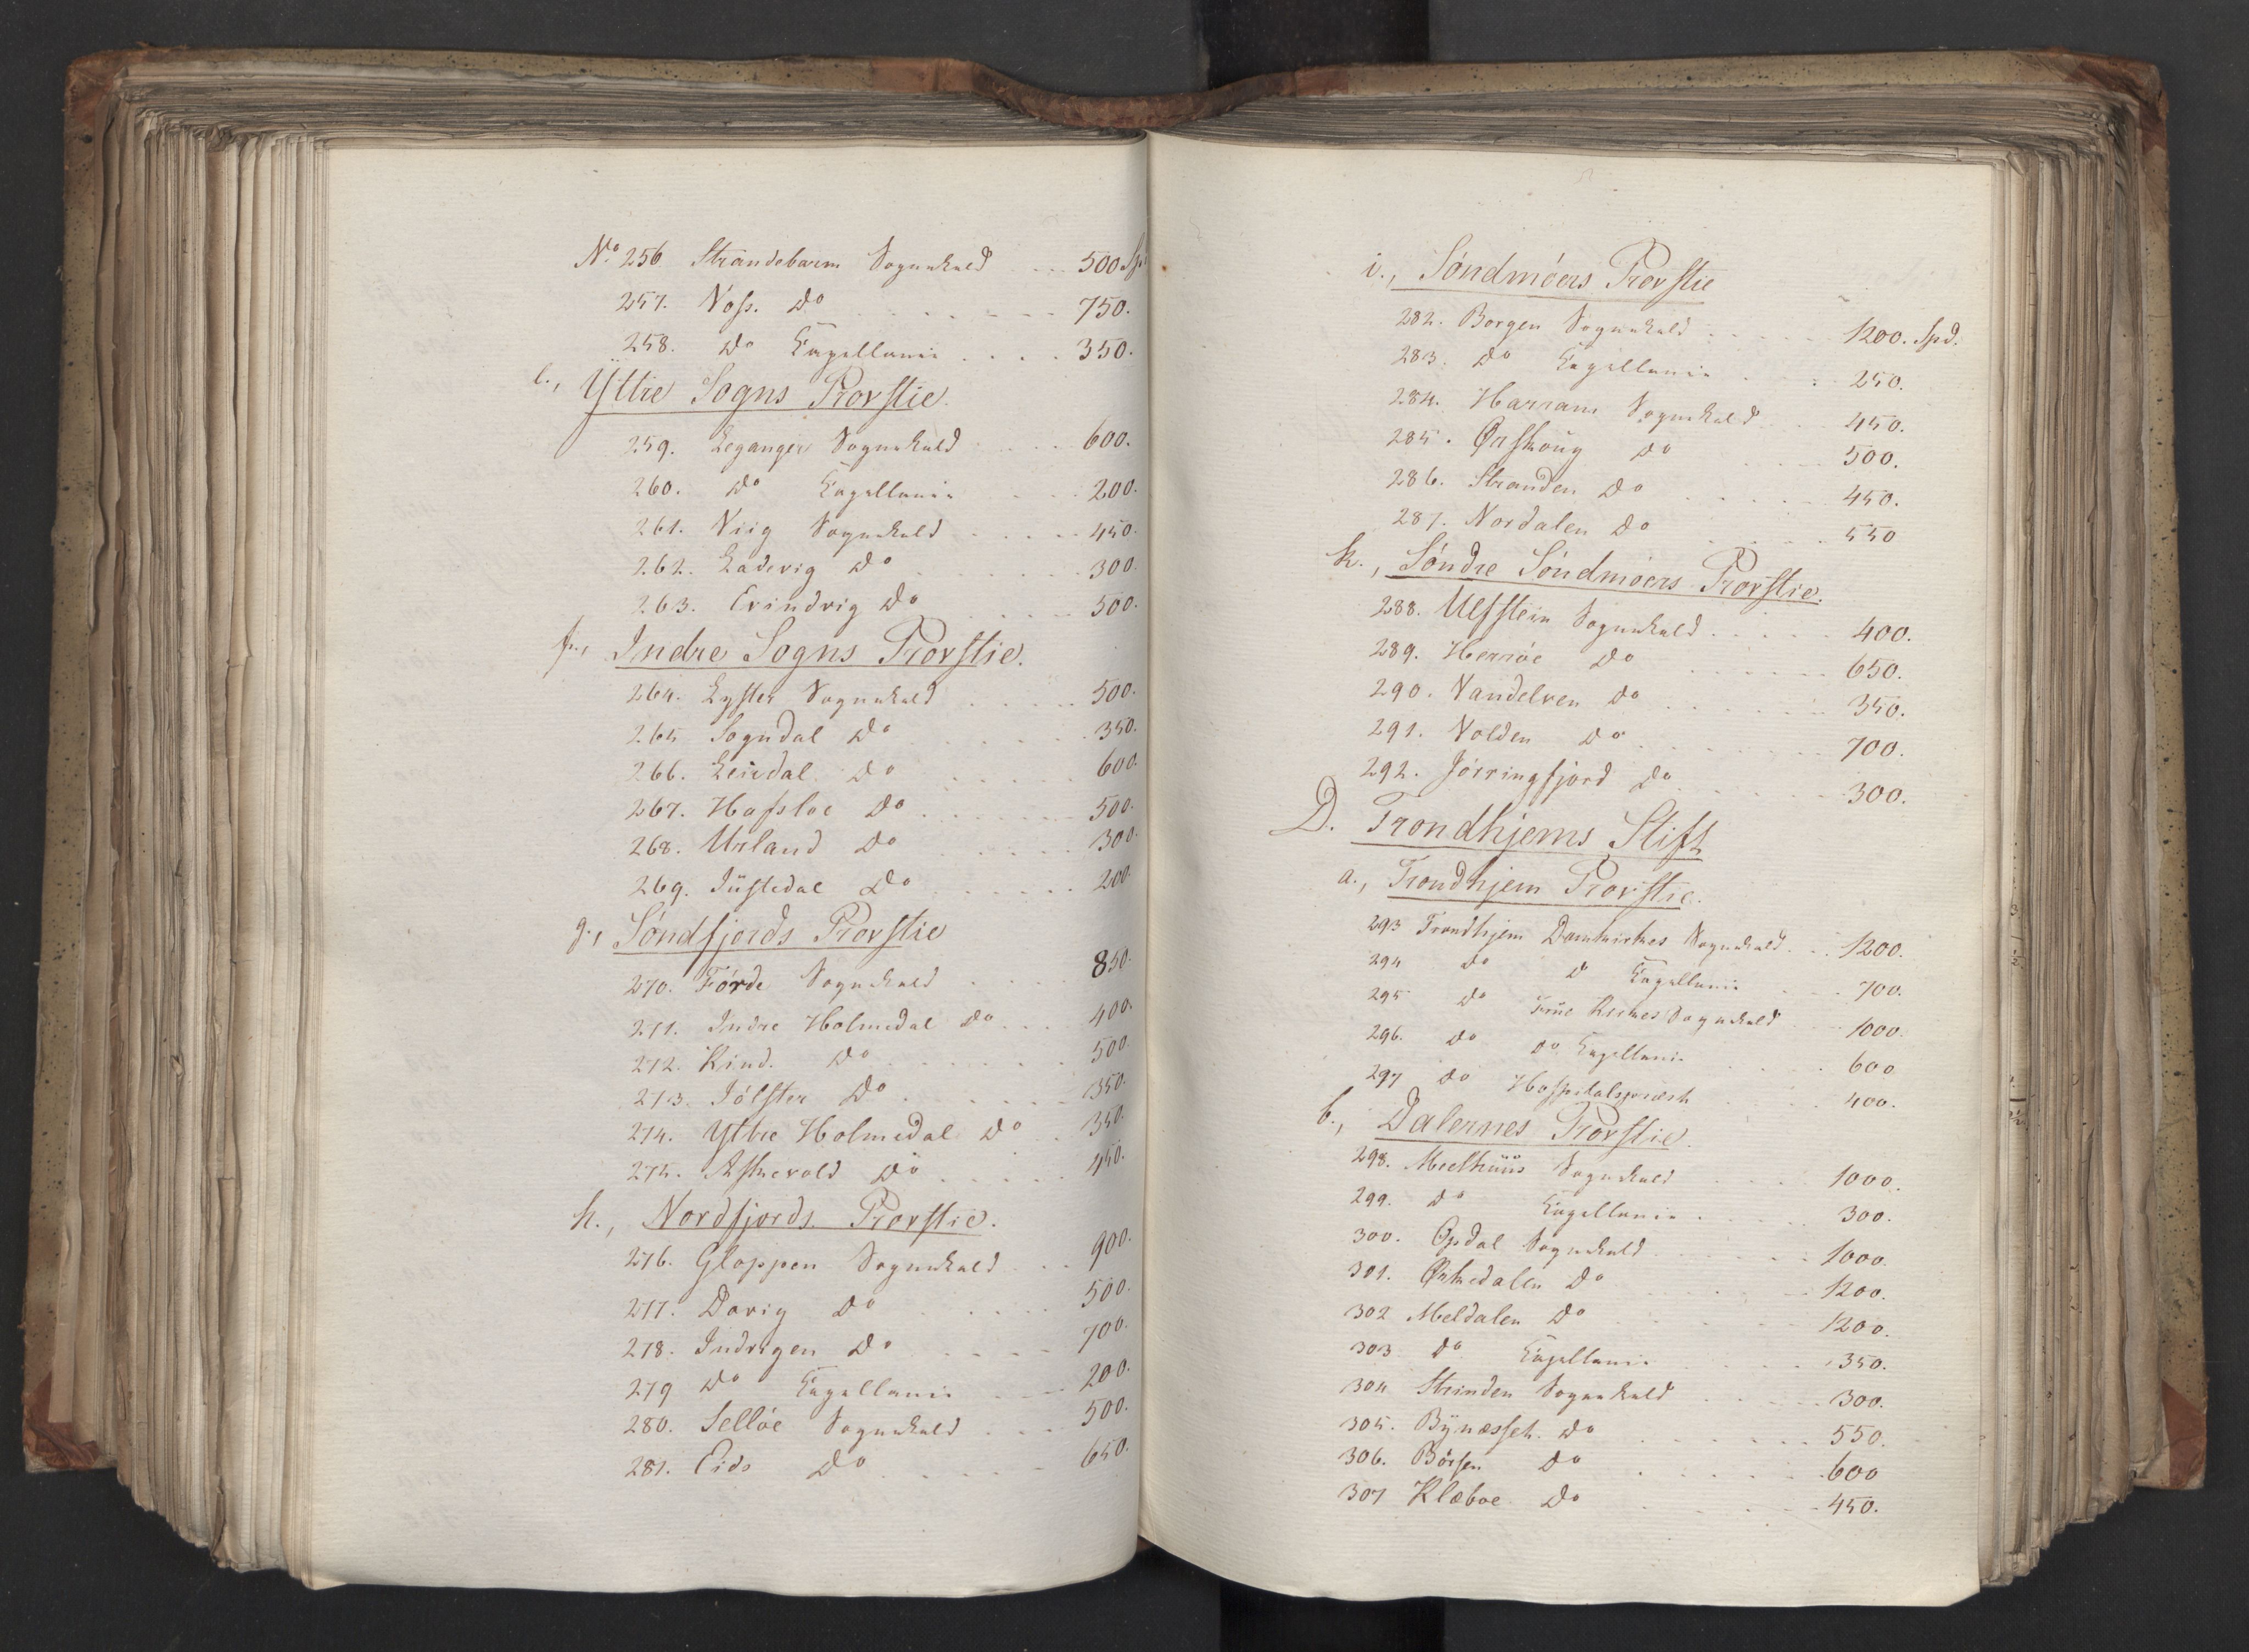 No 256 Strandebarm Sognekald . . . 500 Spd
257. Voss. Do . . . 750.
258. Do Capellanie . . . 350.
e., Yttre Sogns Provstie.
259. Leganger Sognekald . . . 600.
260. Do Capellanie . . . 200.
261. Viig Sognekald . . . 450.
262. Ladevig Do . . . 300.
263. Evindvig Do . . . 500.
f., Indre Sogns Provstie.
264. Lyster Sognekald . . . 500.
265 Sogndal Do . . . 350.
266. Leirdal Do . . . 600.
267. Hafsloe Do . . . 500.
268. Urland Do . . . 300.
269. Jüstedal Do . . . 200.
g., Søndfjords Provstie
270. Førde Sognekald . . . 850.
271. Indre Holmedal Do . . . 400.
272. Kind. Do . . . 500.
273. Jølster Do . . . 350.
274. Yttre Holmedal Do . . . 350.
275. Askevold Do . . . 450.
h., Nordfjords Provstie.
276. Gloppen Sognekald . . . 900.
277. Davig Do . . . 500.
278. Indvigen Do . . . 700.
279 Do Capellanie . . . 200.
280. Selløe Sognekald . . . 500.
281. Eids Do . . . 650.
i., Søndmøers Provstie
282. Borgen Sognekald . . . 1200. Spd.
283. Do Capellanie . . . 250.
284. Harram Sognekald . . . 450.
285. Ørskoug Do . . . 500.
286. Stranden Do . . . 450.
287. Nordalen Do . . . 550
k., Søndre Søndmøers Provstie.
288. Ulfstein Sognekald . . . 400.
289. Herrøe Do . . . 650.
290. Vandelven Do . . . 350.
291. Volden Do . . . 700.
292. Jørringfjord Do . . . 300.
D. Trondhjems Stift
a., Trondhjem Provstie.
293 Trondhjem Domkirkes Sognekald . . . 1200.
294 Do Do Capellanie . . . 700.
295 Do Frue Kirkes Sognekald . . . 1000.
296. Do Do Capellanie . . . 600
297 Do Hospitalspræst . . . 400.
b., Dalernes Provstie.
298. Meelhüüs Sognekald . . . 1000.
299. Do Capellanie . . . 300.
300. Opdal Sognekald . . . 1000.
301. Ørkedalen Do . . . 1200.
302 Meldalen Do . . . 1200.
303 Do Capellanie . . . 350.
304 Strinden Sognekald . . . 300.
305. Bÿnæsset. Do . . . 550.
306. Børsen Do . . . 600
307 Klæboe Do . . . 450.